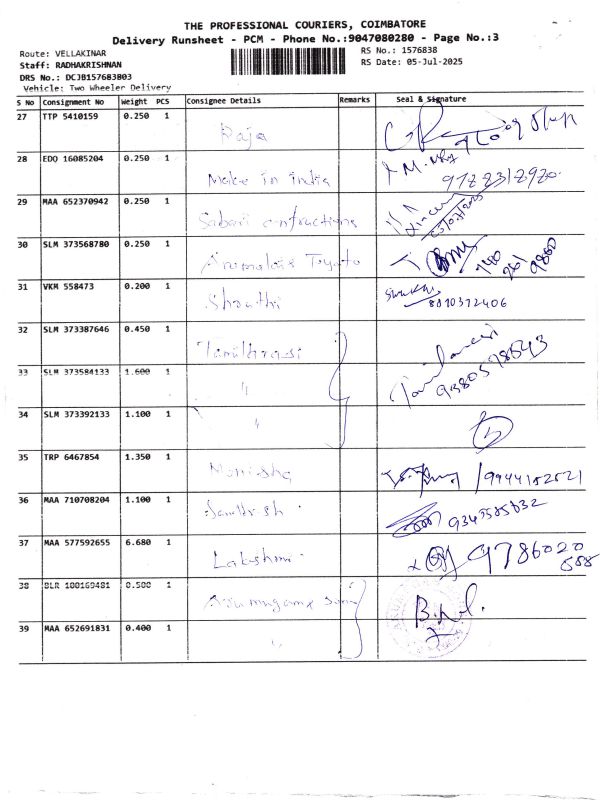 THE PROFESSIONAL COURIERS, COIMBATORE
Delivery Runsheet - PCM - Phone No.:9047080280 - Page No.:3
Route: VELLAKINAR RS No.: 1576838
Staff: RADHAKRISHNAN RS Date: 05-Jul-2025
DRS No.: DCJB157683803
Vehicle: Two Wheeler Delivery
S No Consignment No Weight PCS Consignee Details Remarks Seal & Signature
27 TTP 5410159 0.250 1 Raja
28 EDO 16085204 0.250 1 Make in india
9122312920
29 MAA 652370942 0.250 1 Sabari
30 SLM 373568780 0.250 1
31 VKM 558473 0.200 1 Shanthi
8010372406
32 SLM 373387646 0.450 1 Tamilarasi
33 SLM 373584133 1.600 1 "
9380578543
34 SLM 373392133 1.100 1 "
35 TRP 6467854 1.350 1 Monisha
36 MAA 710708204 1.100 1 Santhosh
37 MAA 577592655 6.680 1 Lakshmi
9786020
588
38 BLR 100169481 0.500 1
39 MAA 652691831 0.400 1 "